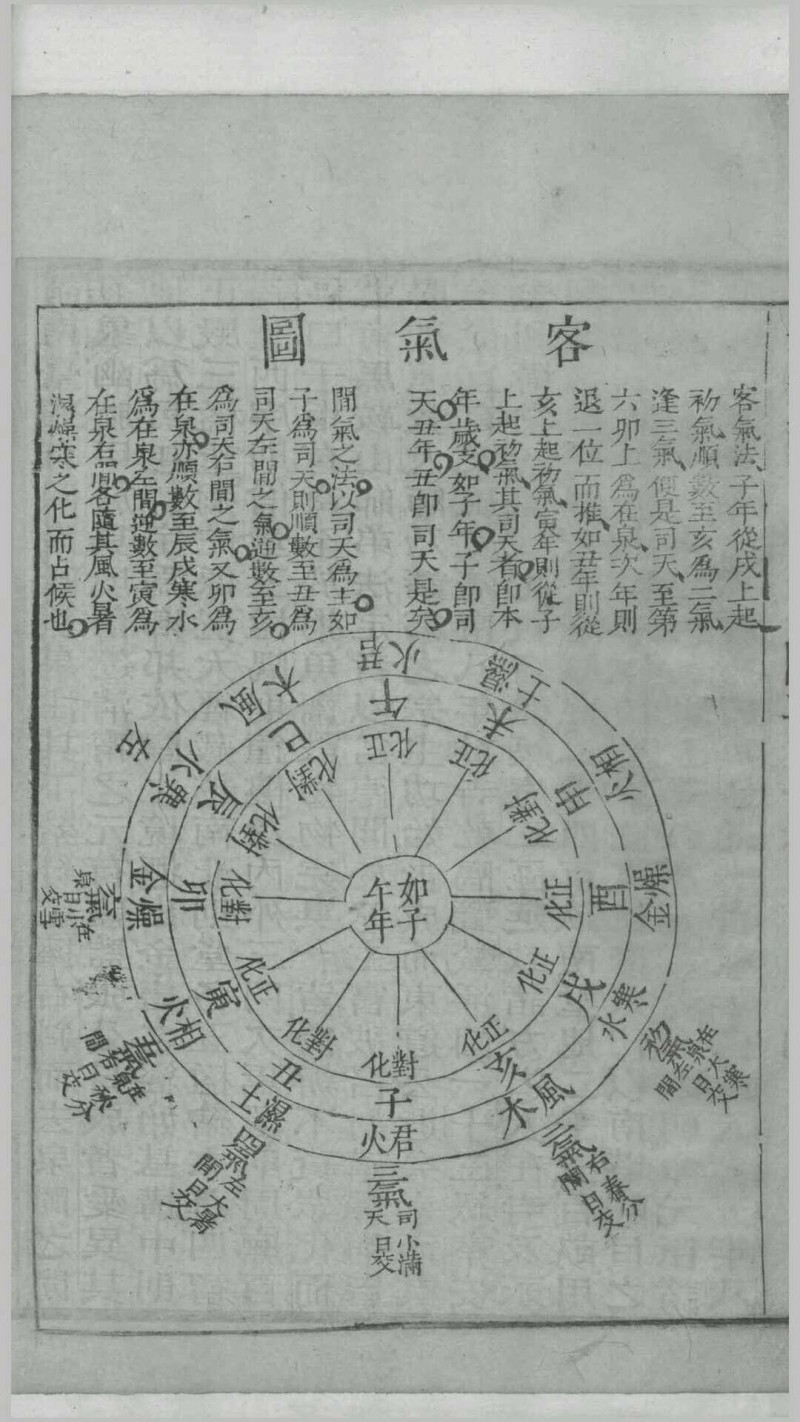 客氣圖
客氣法子年從戌上起
初氣順數至亥爲二氣
逢三氣便是司天至第
六卯上爲在泉次年則
退一位而推如丑年則從
亥上起初氣寅年則從子
上起初氣其司天者即本
年歲支如子年子即司
天丑年丑即司天是矣
間氣之法以司天爲主如
子爲司天則順數至丑爲
司天左間之氣逆數至亥
爲司天右間之氣又卯爲
在泉亦順數至辰戌寒水
爲在泉左間逆數至寅爲
在泉右間各隨其風火暑
濕燥寒之化而占候也
如子
午年
君火
午
正化
濕土
未
正化
相火
申
對化
燥金
酉
正化
寒水
戌
正化
風木
亥
正化
君火
子
對化
濕土
丑
對化
相火
寅
正化
燥金
卯
對化
寒水
辰
對化
風木
巳
對化
初氣
在泉左間
大寒日交
二氣
右間
春分日交
三氣
司天
小滿日交
四氣
左間
大暑日交
五氣
在泉右間
秋分日交
六氣
在泉
小雪日交